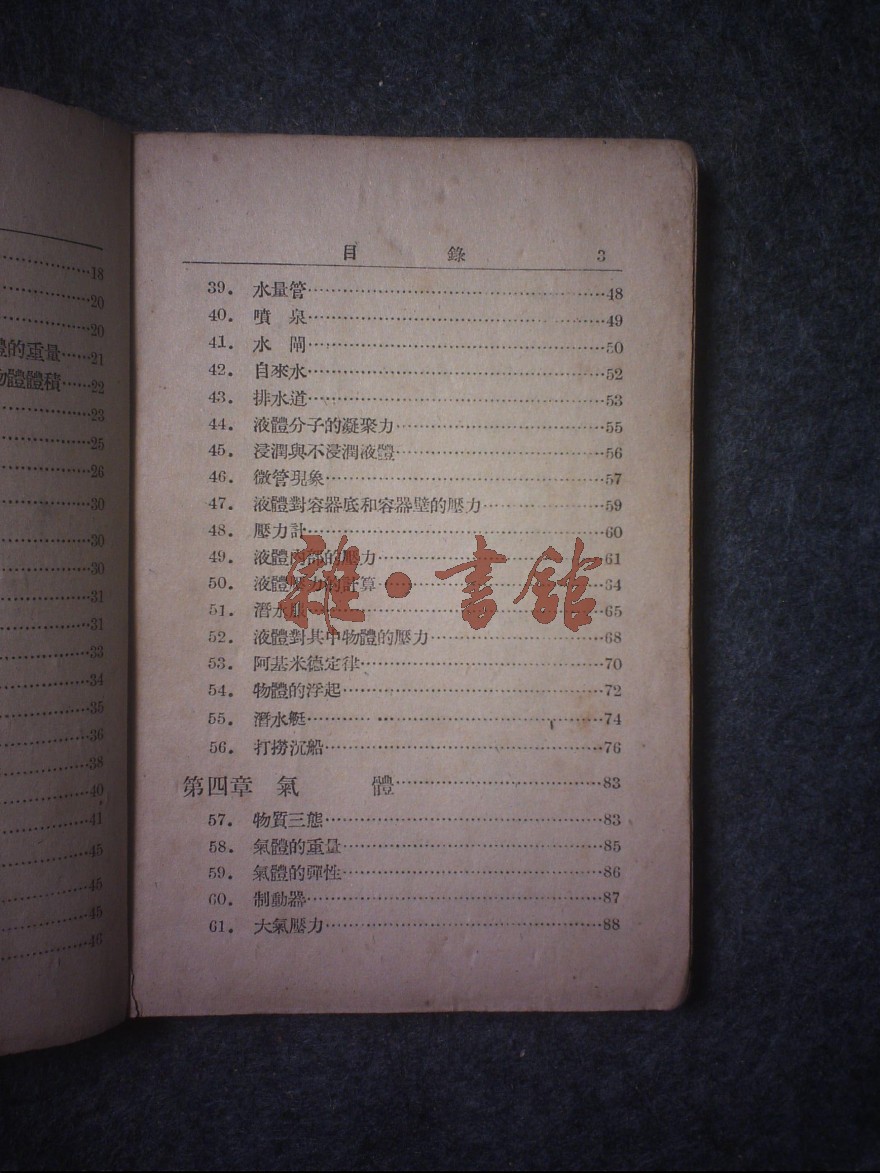 18
20
20
體的重量……21
物體體積……22
23
25
26
30
30
30
31
31
33
34
35
36
38
40
41
45
45
45
46
目 錄 3
39. 水量管……48
40. 噴 泉……49
41. 水 閘……50
42. 自來水……52
43. 排水道……53
44. 液體分子的凝聚力……55
45. 浸潤與不浸潤液體……56
46. 微管現象……57
47. 液體對容器底和容器壁的壓力……59
48. 壓力計……60
49. 液體內部的壓力……61
50. 液體壓力的計算……64
51. 潛水服……65
52. 液體對其中物體的壓力……68
53. 阿基米德定律……70
54. 物體的浮起……72
55. 潛水艇……74
56. 打撈沉船……76
第四章 氣 體……83
57. 物質三態……83
58. 氣體的重量……85
59. 氣體的彈性……86
60. 制動器……87
61. 大氣壓力……88
雜·書館